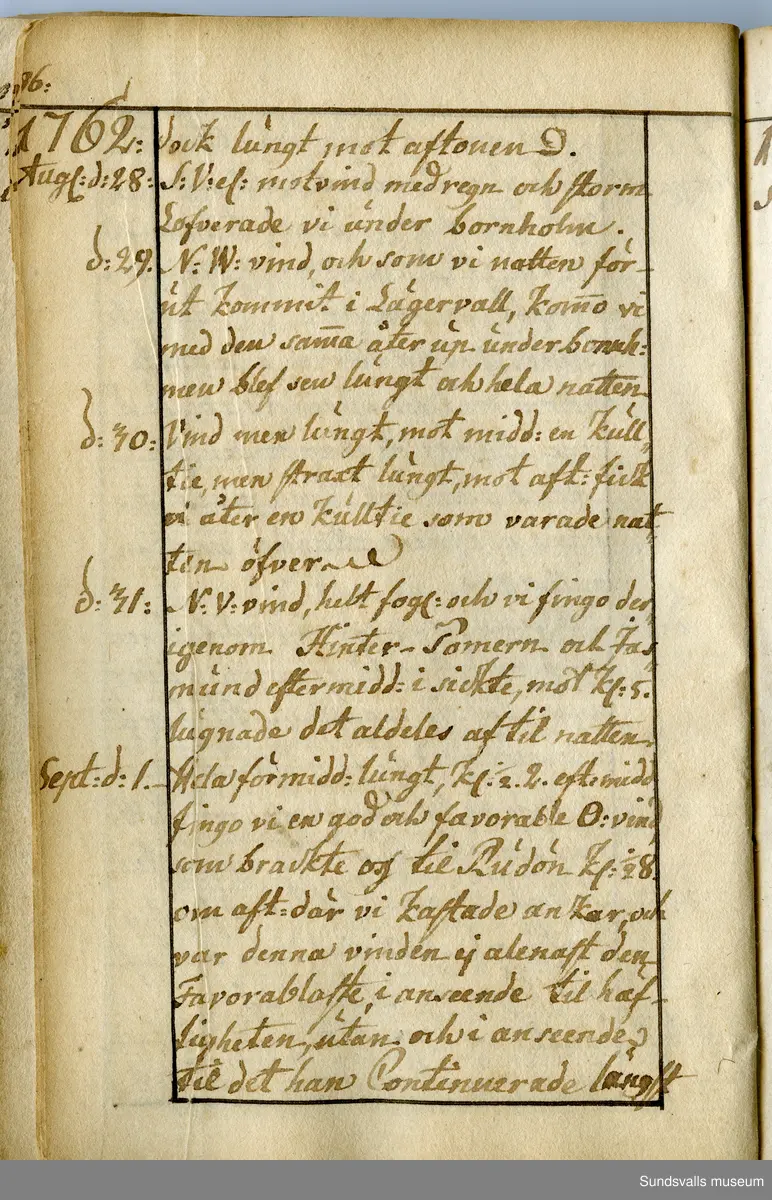 96:
1762: dock lungt mot aftonen D.
Augl: d: 28: S: V: el: motvind med regn och storm
Lofverade vi under bornholm.
d: 29. N: W: vind, och som vi natten för-
ut kommit i Lägervall, kom̄o vi
med den sam̄a åter up under bornh:
men blef sen lungt och hela natten
d: 30: Vind men lungt, mot midd: en küll,
tie, men straxt lungt, mot aft: fick
vi åter en külltie som varade nat,
ten öfver
d: 31: N: V: vind, helt fogl: och vi fingo der,
igenom Hinter-Pomern och Jas,
mund eftermidd: i sickte, mot kl: 5.
lugnade det aldeles af til natten
Sept: d: 1. Hela förmidd: lungt, kl: ½ 2. eft: midd
fingo vi en god och favorable O: vind
som brackte oss til Rudön kl: ½ 8.
om aft: där vi kastade ankar, och
var denna vinden ej alenast den
Favorablaste, i anseende til häf-
tigheten, utan och i anseende
til det han Continuerade längst
Sundsvalls museum